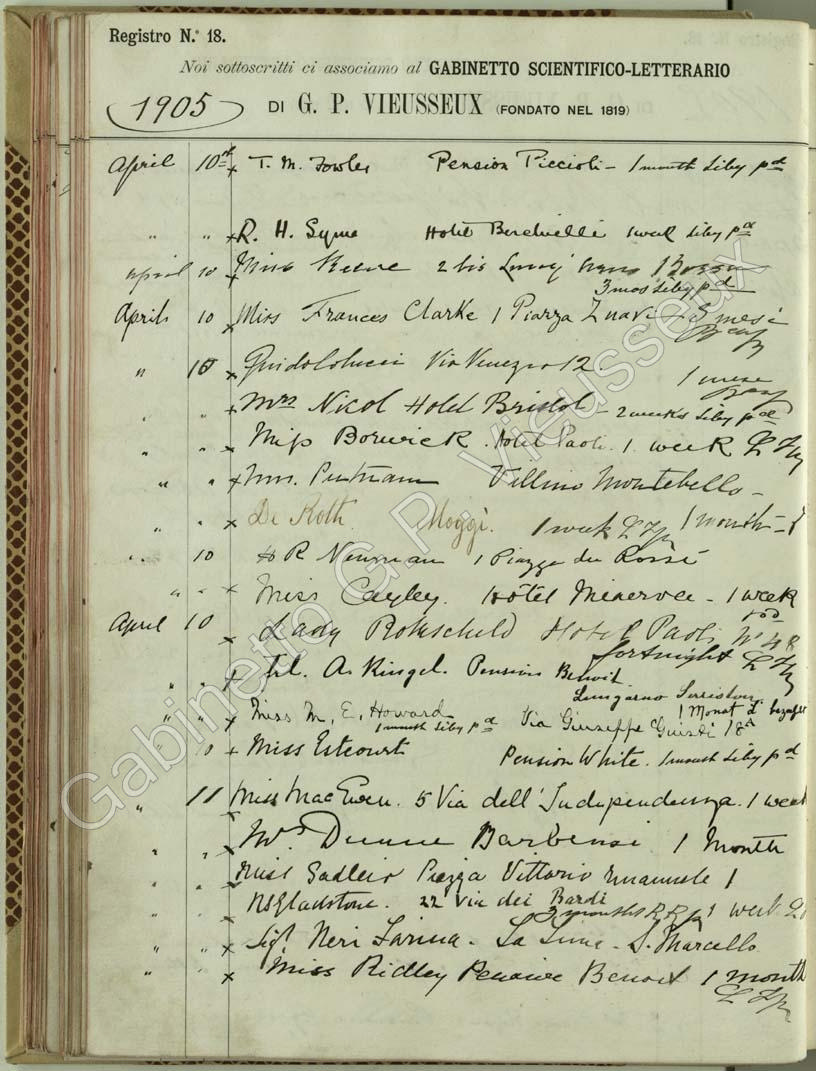 Registro N.° 18.
Noi sottoscritti ci associamo al GABINETTO SCIENTIFICO-LETTERARIO
1905 DI G. P. VIEUSSEUX (FONDATO NEL 1819)
April 10 x T. M. Fowler Pension Piccioli - 1 month Liby pd
" " x R. H. Syme Hotel Berchielli 1 week Liby pd
April 10 x Miss 2 bis
3 mos Liby pd
April 10 x Miss Frances Clarke 1 Piazza 3 mesi
" 10 x Guido Via Venezia 12 1 mese
" " x Mrs Nicol Hotel Bristol - 2 weeks Liby pd
" " x Miss Borwick. Hotel Paoli. 1 week
" " x Mrs. Putnam Villino Montebello -
" " x De Roth. Moggi. 1 week 1 month
" " 10 H R Newman 1 Piazza dei Rossi
" " x Miss Cayley. Hôtel Minerva - 1 week
April 10 x Lady Rothschild Hotel Paoli No 48
fortnight
" " x Frl. A. Ringel. Pension Benoit
Lungarno Serristori
" " x Miss M. E. Howard Via Giuseppe Giusti 18A 1 Monat
1 month Liby pd
" 10 x Miss Estcourt Pension White. 1 month Liby pd
" 11 x Miss MacEwen. 5 Via dell'Indipendenza. 1 week
" " x Mrs Dunne Barbensi 1 Month
" " x Miss Sadleir Piazza Vittorio Emanuele 1
Gladstone. 22 Via dei Bardi
3 months 1 week
" " x Neri Farina - La Lime - S. Marcello
" " x Miss Ridley Pension Benoit 1 month
Gabinetto G.P. Vieusseux